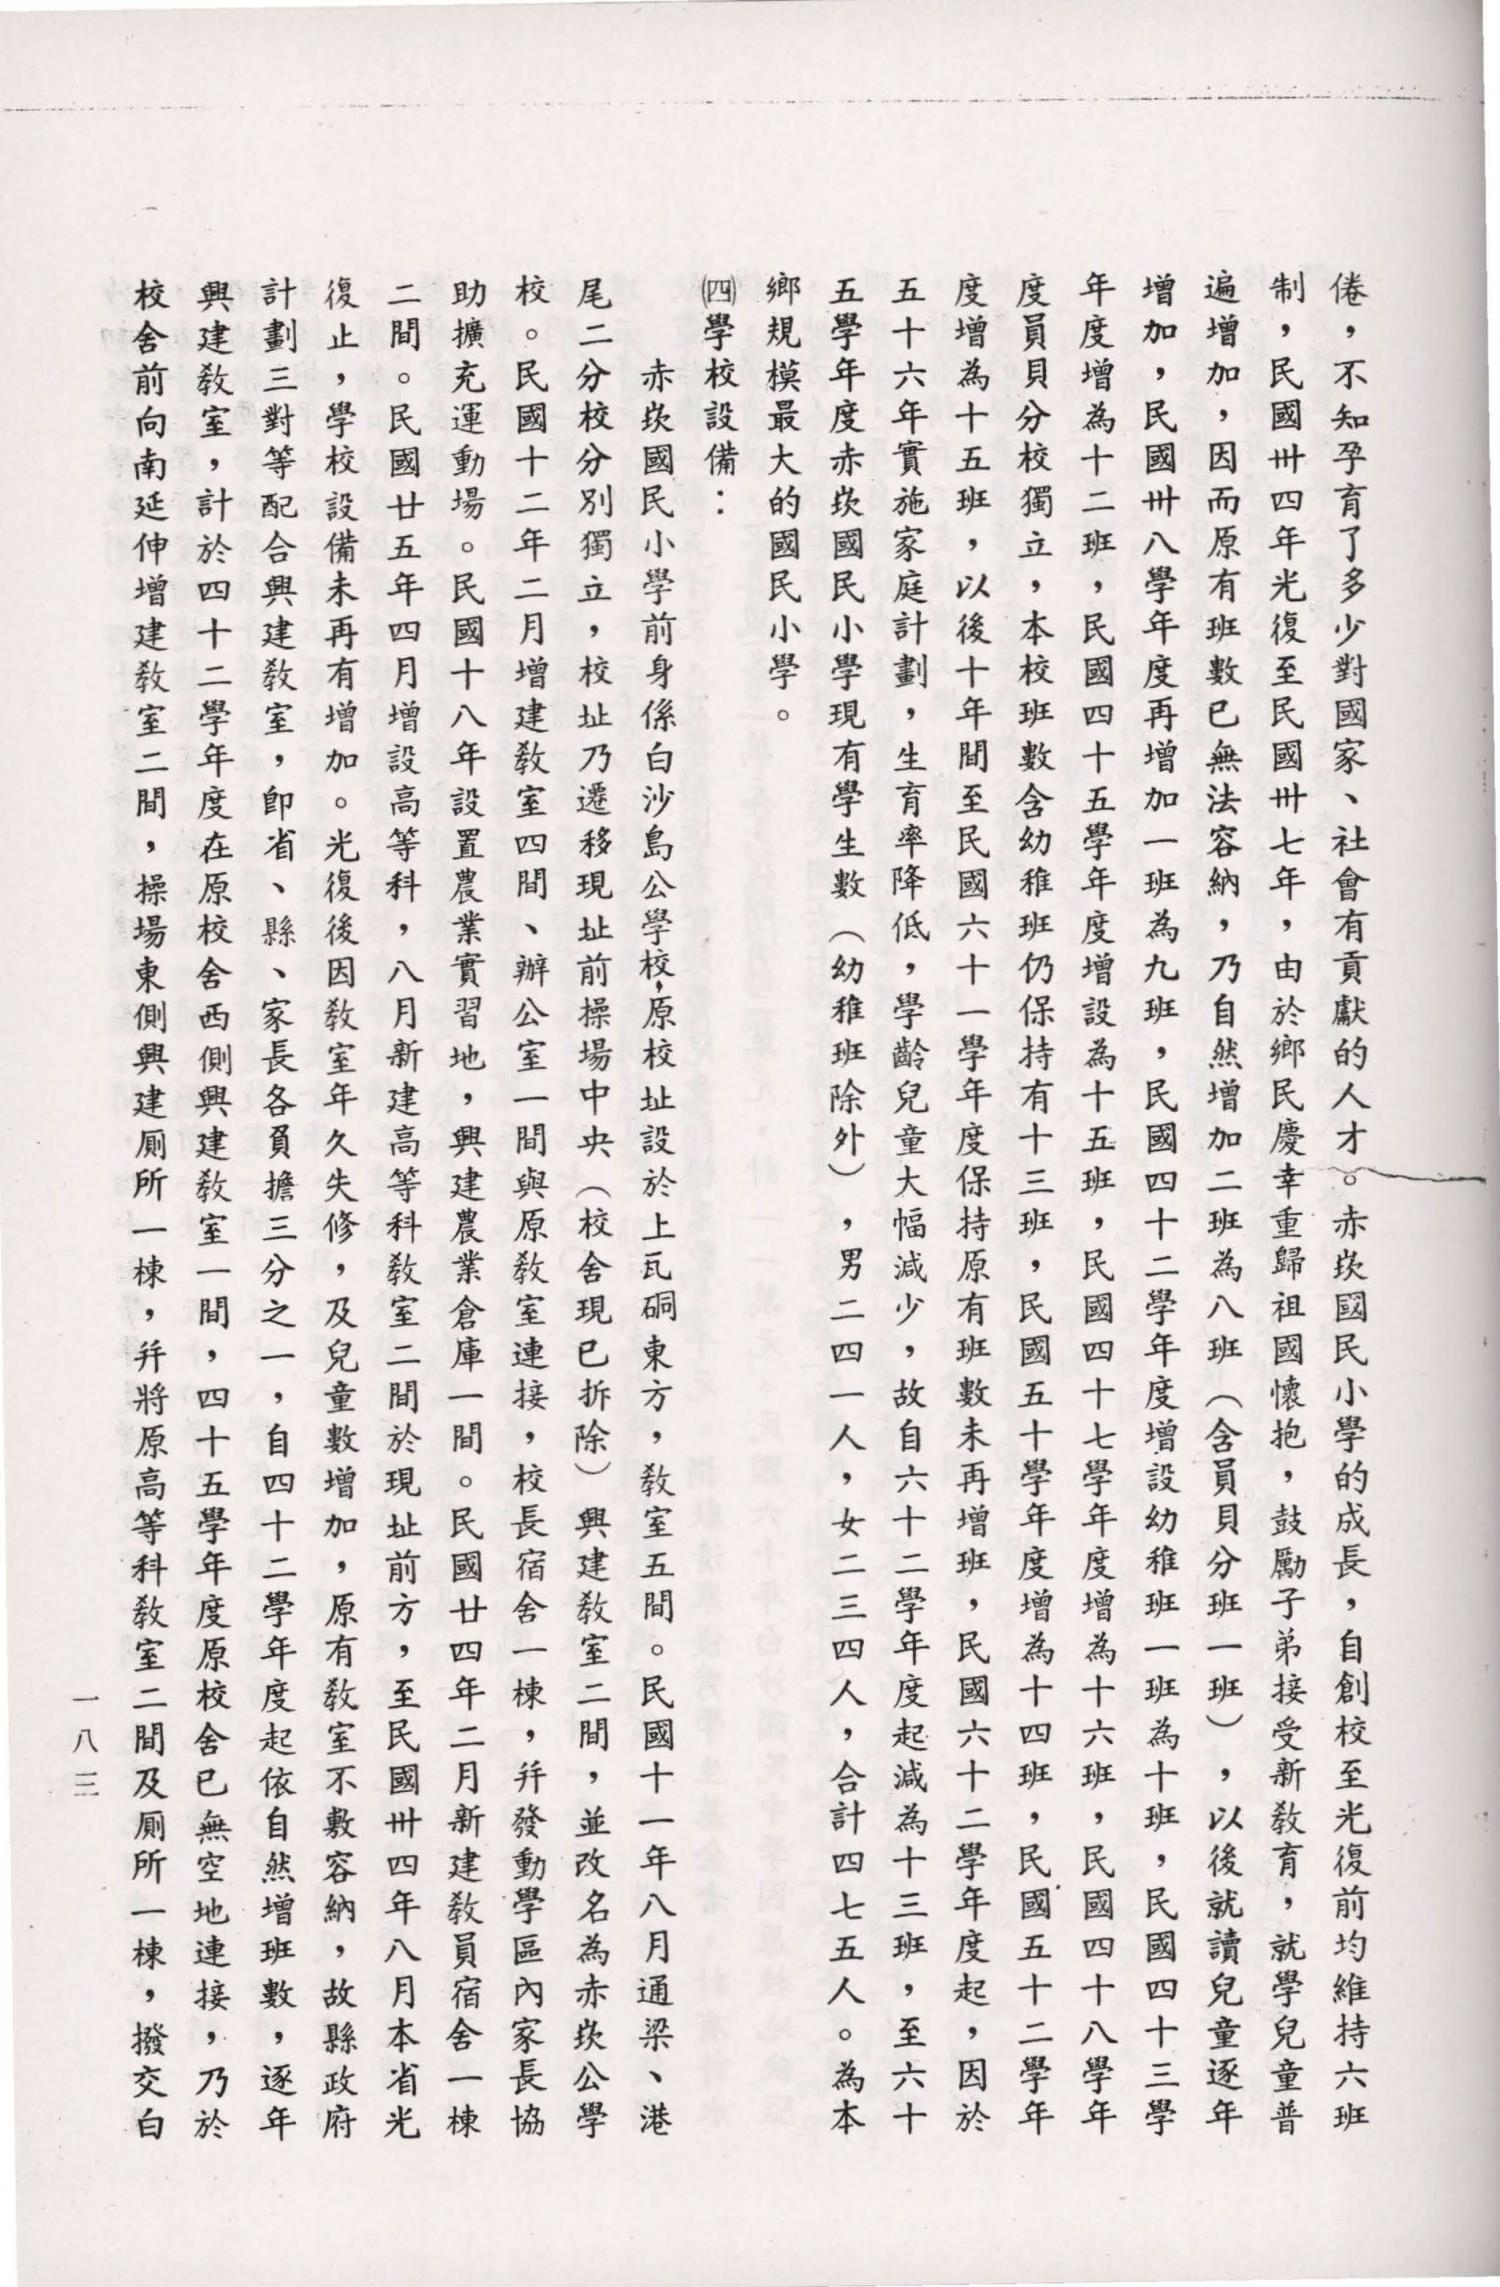 倦，不知孕育了多少對國家、社會有貢獻的人才。赤崁國民小學的成長，自創校至光復前均維持六班
制，民國卅四年光復至民國卅七年，由於鄉民慶幸重歸祖國懷抱，鼓勵子弟接受新教育，就學兒童普
遍增加，因而原有班數已無法容納，乃自然增加二班為八班（含員貝分班一班），以後就讀兒童逐年
增加，民國卅八學年度再增加一班為九班，民國四十二學年度增設幼稚班一班為十班，民國四十三學
年度增為十二班，民國四十五學年度增設為十五班，民國四十七學年度增為十六班，民國四十八學年
度員貝分校獨立，本校班數含幼稚班仍保持有十三班，民國五十學年度增為十四班，民國五十二學年
度增為十五班，以後十年間至民國六十一學年度保持原有班數未再增班，民國六十二學年度起，因於
五十六年實施家庭計劃，生育率降低，學齡兒童大幅減少，故自六十二學年度起減為十三班，至六十
五學年度赤崁國民小學現有學生數（幼稚班除外），男二四一人，女二三四人，合計四七五人。為本
鄉規模最大的國民小學。
㈣學校設備：
赤崁國民小學前身係白沙島公學校，原校址設於上瓦硐東方，教室五間。民國十一年八月通梁、港
尾二分校分別獨立，校址乃遷移現址前操場中央（校舍現已拆除）興建教室二間，並改名為赤崁公學
校。民國十二年二月增建教室四間、辦公室一間與原教室連接，校長宿舍一棟，幷發動學區內家長協
助擴充運動場。民國十八年設置農業實習地，興建農業倉庫一間。民國廿四年二月新建教員宿舍一棟
二間。民國廿五年四月增設高等科，八月新建高等科教室二間於現址前方，至民國卅四年八月本省光
復止，學校設備未再有增加。光復後因教室年久失修，及兒童數增加，原有教室不敷容納，故縣政府
計劃三對等配合興建教室，卽省、縣、家長各負擔三分之一，自四十二學年度起依自然增班數，逐年
興建教室，計於四十二學年度在原校舍西側興建教室一間，四十五學年度原校舍已無空地連接，乃於
校舍前向南延伸增建教室二間，操場東側興建厠所一棟，幷將原高等科教室二間及厠所一棟，撥交白
一八三